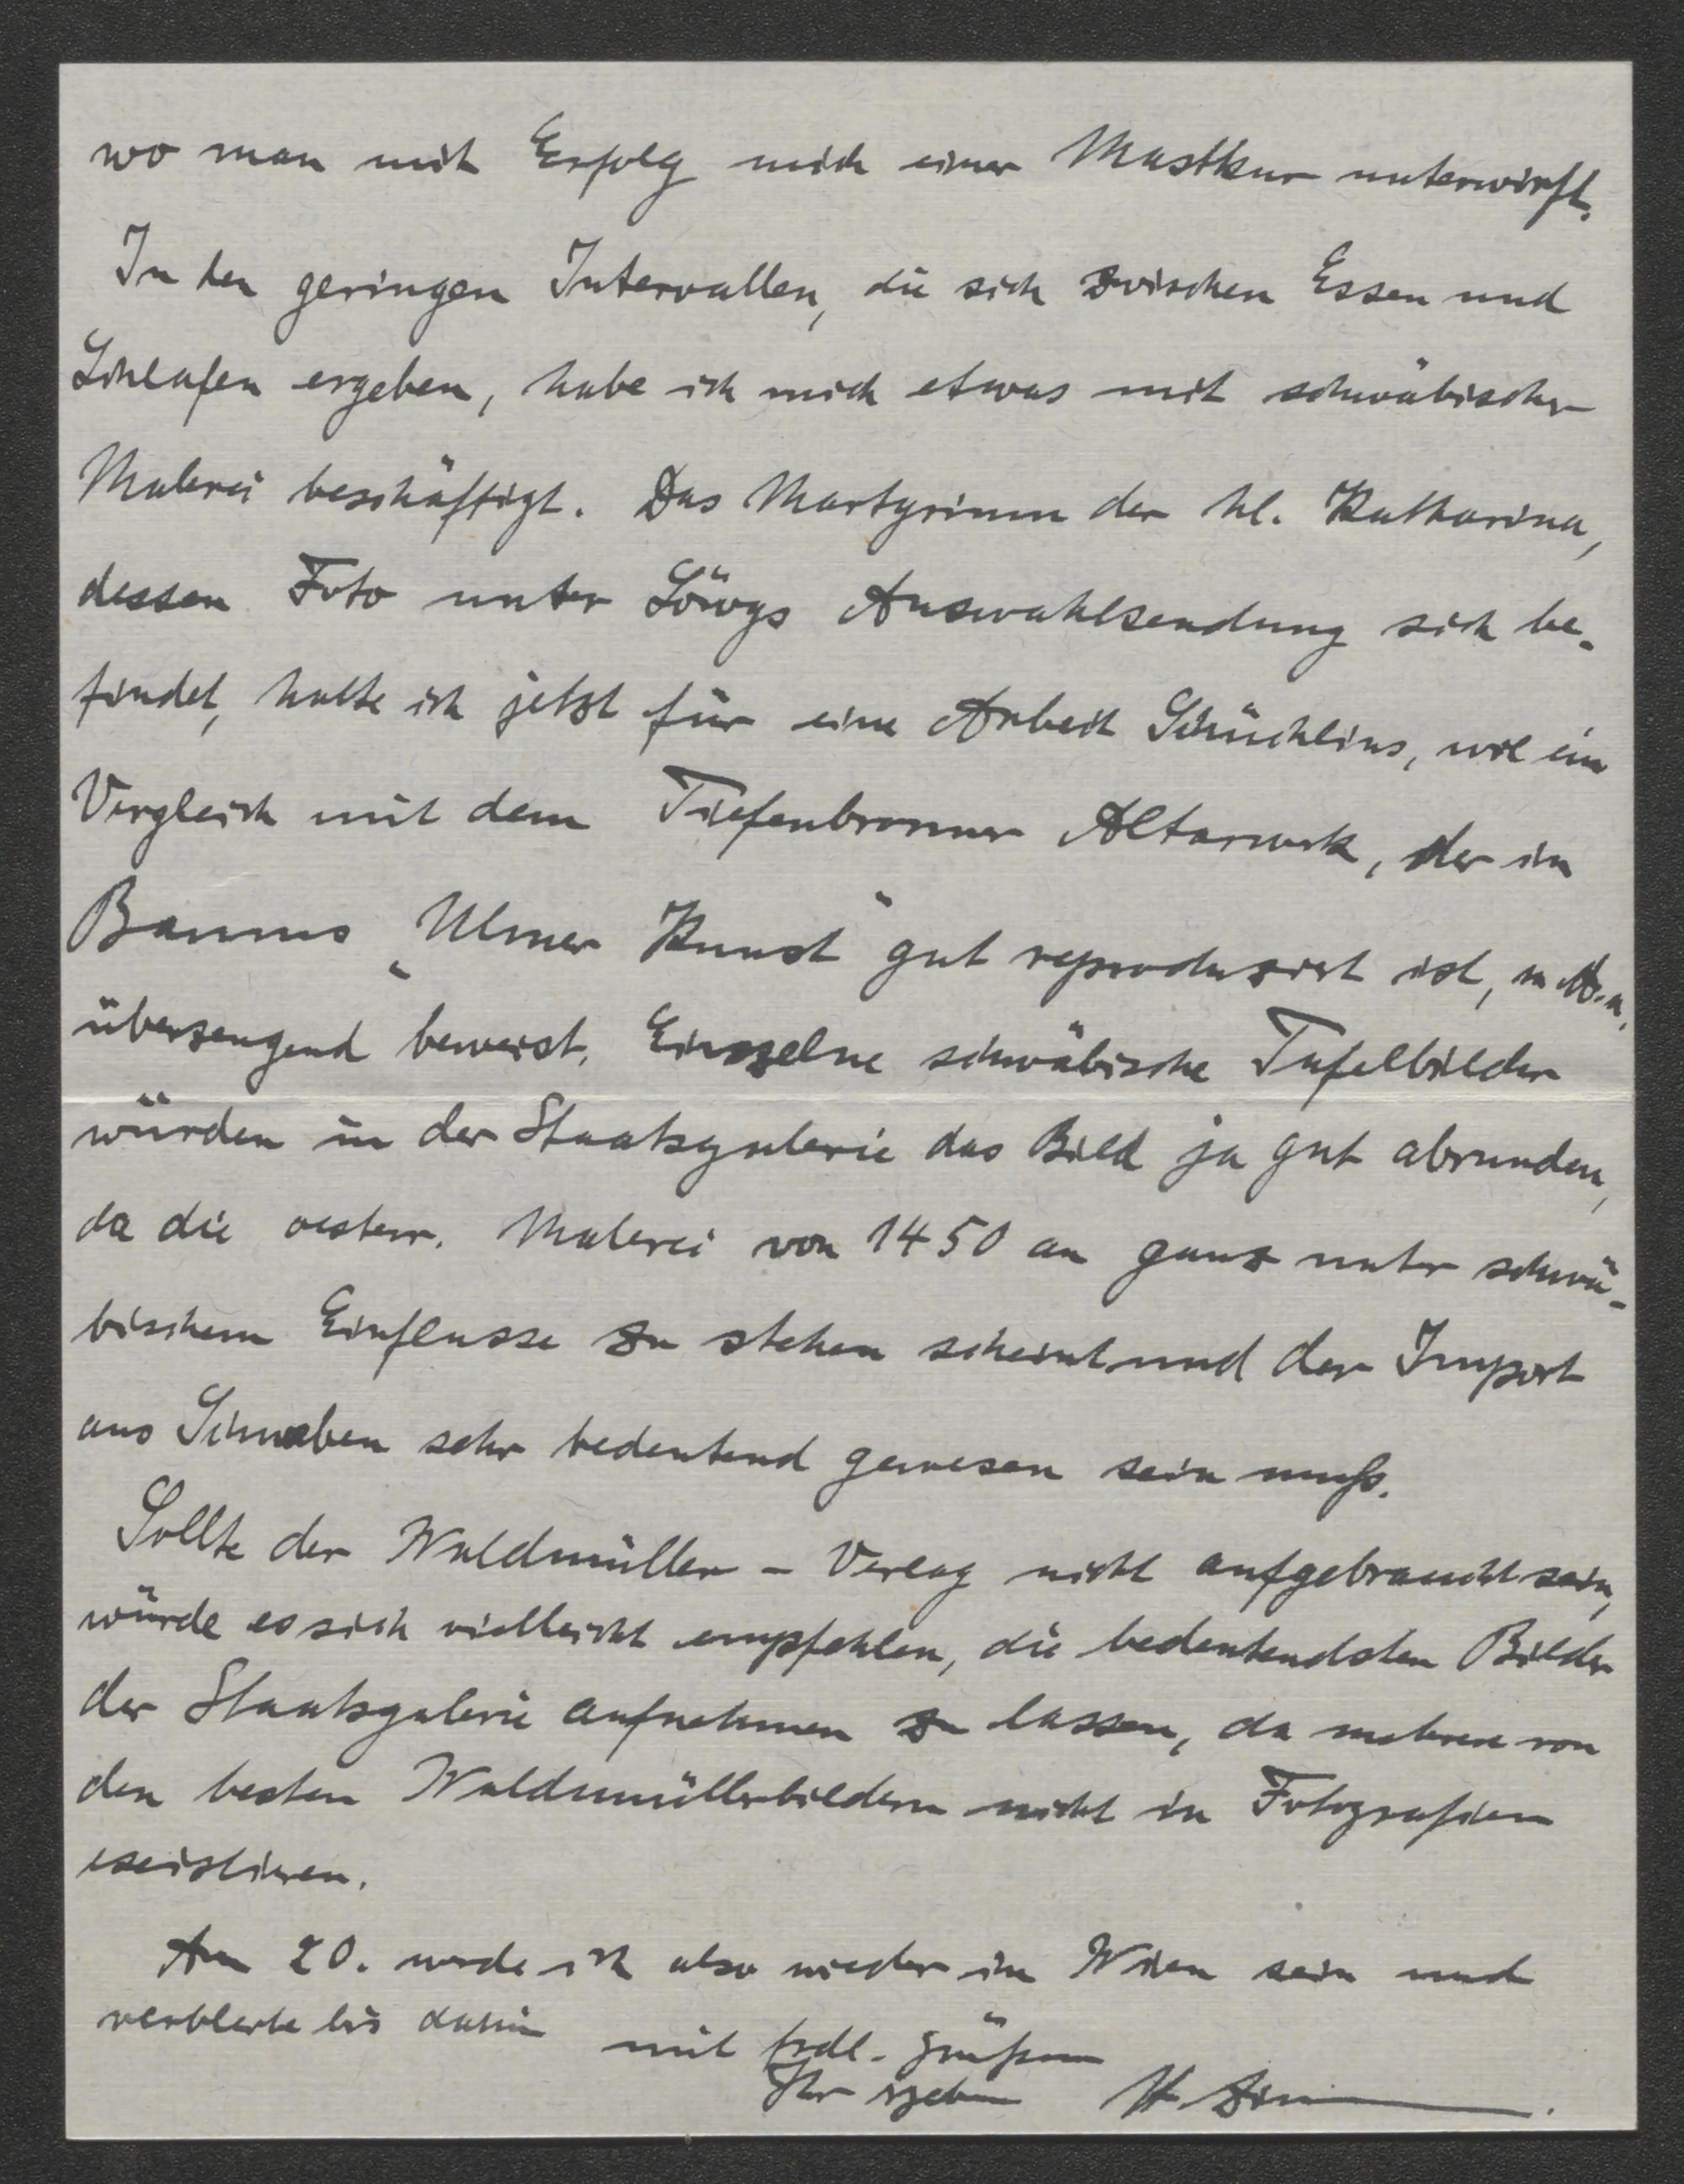 wo man mit Erfolg mich einer Mastkur unterwirft.
In den geringen Intervallen, die sich zwischen Essen und
Schlafen ergeben, habe ich mich etwas mit schwäbischer
Malerei beschäftigt. Das Martyrium der hl. Katharina,
dessen Foto unter Löwys Auswahlsendung sich be-
findet, halte ich jetzt für eine Arbeit Schüchlins, wie ein
Vergleich mit dem Tiefenbronner Altarwerk, der in
Baums „Ulmer Kunst" gut reproduziert ist, m. A. n.
überzeugend beweist. Einzelne schwäbische Tafelbilder
würden in der Staatsgalerie das Bild ja gut abrunden,
da die oesterr. Malerei von 1450 an ganz unter schwä-
bischem Einflusse zu stehen scheint und der Import
aus Schwaben sehr bedeutend gewesen sein muß.
Sollte der Waldmüller - Verlag nicht aufgebraucht sein,
würde es sich vielleicht empfehlen, die bedeutendsten Bilder
der Staatsgalerie aufnehmen zu lassen, da mehrere von
den besten Waldmüllerbildern nicht in Fotografien
existieren.
Am 20. werde ich also wieder in Wien sein und
verbleibe bis dahin mit frdl. Grüßen
Ihr ergebener H